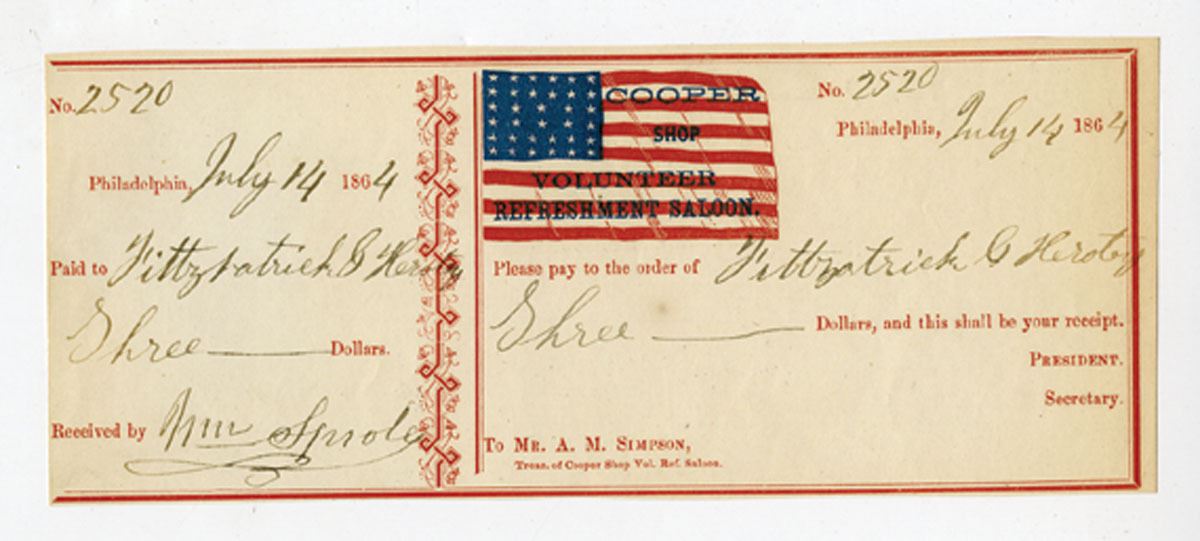 No. 2520
Philadelphia, July 14 1864
Paid to Fittzpatrick &
Three Dollars.
Received by Wm Sprole
COOPER
SHOP
VOLUNTEER
REFRESHMENT SALOON.
No. 2520
Philadelphia, July 14 1864
Please pay to the order of Fittzpatrick &
Three Dollars, and this shall be your receipt.
PRESIDENT.
Secretary.
To MR. A. M. SIMPSON,
Treas. of Cooper Shop Vol. Ref. Saloon.